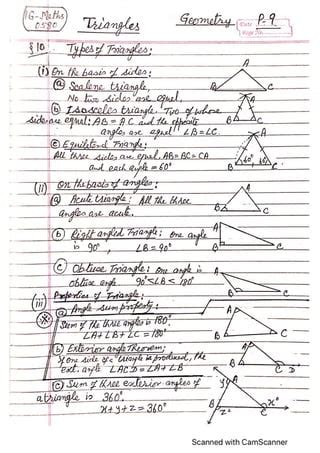 G-Maths Triangles Geometry Date P-9
0580 Page No.
§10. Types of Triangles:
(i) On the basis of sides: A
(a) Scalene triangle, B C
No two sides are equal.
(b) Isosceles triangle: Two of whose A
sides are equal: AB = AC and the opposite B C
angles are equal ∠B = ∠C.
(c) Equilateral Triangle: A
All three sides are equal. AB=BC=CA 60° 60°
and each angle = 60° B C
(ii) On the basis of angles:
(a) Acute triangle: All the three A
angles are acute. B C
(b) Right angled Triangle: One angle A
is 90°, ∠B = 90° B C
(c) Obtuse Triangle: One angle is A
obtuse angle 90°<∠B<180° B C
(iii) Properties of Triangle:
(a) Angle sum property: A
Sum of the three angles is 180°.
∠A+∠B+∠C = 180° B C
(b) Exterior angle Theorem: A
If one side of a triangle is produced, the
ext. angle ∠ACD = ∠A+∠B B C D
(c) Sum of three exterior angles of y° A
a triangle is 360°. x°
x+y+z = 360° B z° C
Scanned with CamScanner